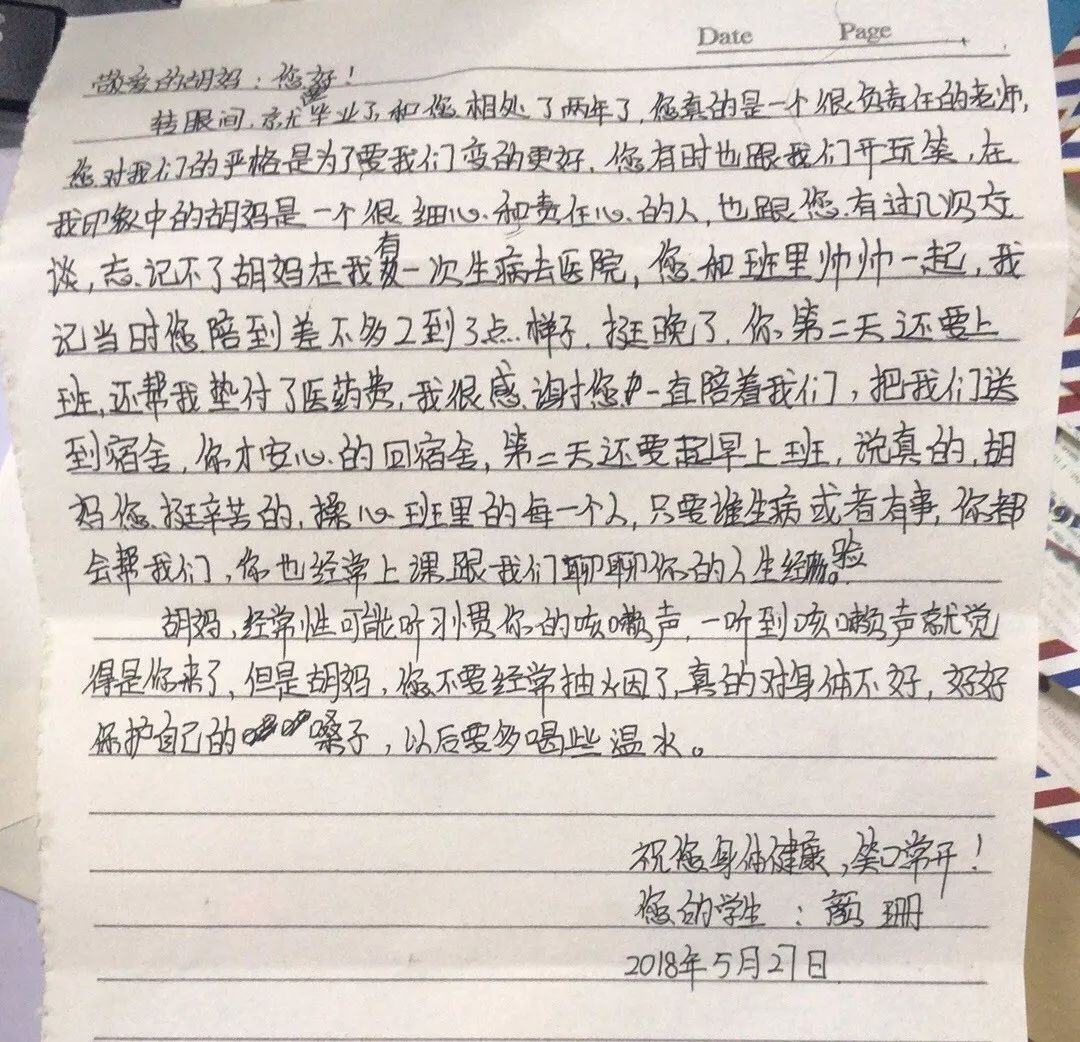 Date Page
敬爱的胡妈：您好！
转眼间，就要毕业了，和您相处了两年了，您真的是一个很负责任的老师，
您对我们的严格是为了要我们变的更好，您有时也跟我们开玩笑，在
我印象中的胡妈是一个很细心和责任心的人，也跟您有过几次交
谈，忘记不了胡妈在我有一次生病去医院，您和班里帅帅一起，我
记当时您陪到差不多2到3点…样子，挺晚了，你第二天还要上
班，还帮我垫付了医药费，我很感谢您一直陪着我们，把我们送
到宿舍，你才安心的回宿舍，第二天还要起早上班，说真的，胡
妈您挺辛苦的，操心班里的每一个人，只要谁生病或者有事，你都
会帮我们，你也经常上课跟我们聊聊你的人生经验。
胡妈，经常性可能听习惯你的咳嗽声，一听到咳嗽声就觉
得是你来了，但是胡妈，您不要经常抽烟了，真的对身体不好，好好
保护自己的嗓子，以后要多喝些温水。
祝您身体健康，笑口常开！
您的学生：颜珊
2018年5月27日